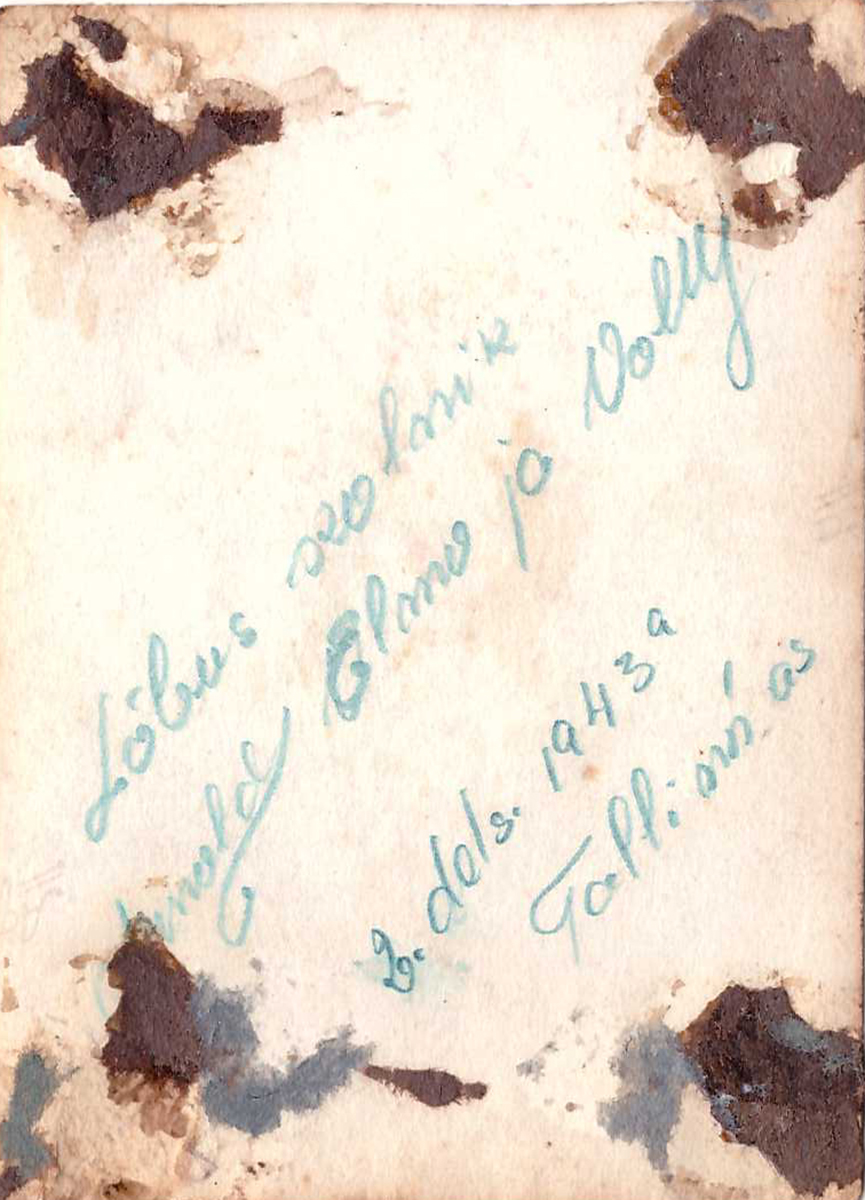 Lõbus kolmik
Arnold Elmo ja Volly
2. dets. 1943 a
Tallinnas